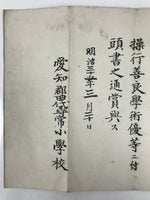 操行善良學術優等ニ付
頭書之通賞與ス
明治三十四年三月二十日
愛知郡田代尋常小學校